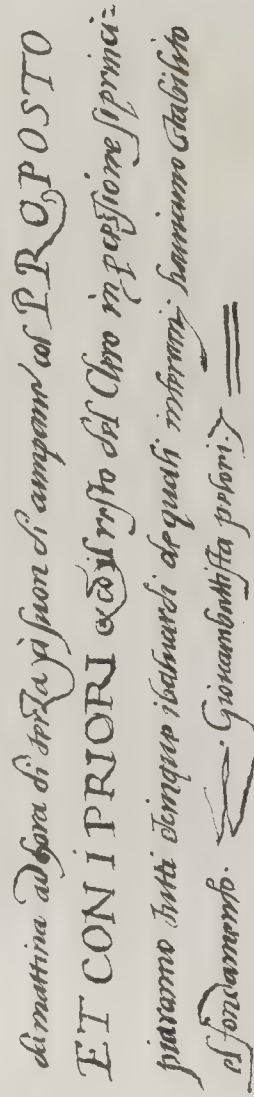 di mattina ad hora di terza p̱ il suon di campane col PROPOSTO
ET CON I PRIORI & cõ il resto del Clero in p̱cessione si princi=
piaranno tutti cinque i baluardi de quali haviamo stabilito
el fondamento. Giovambattista pelori.